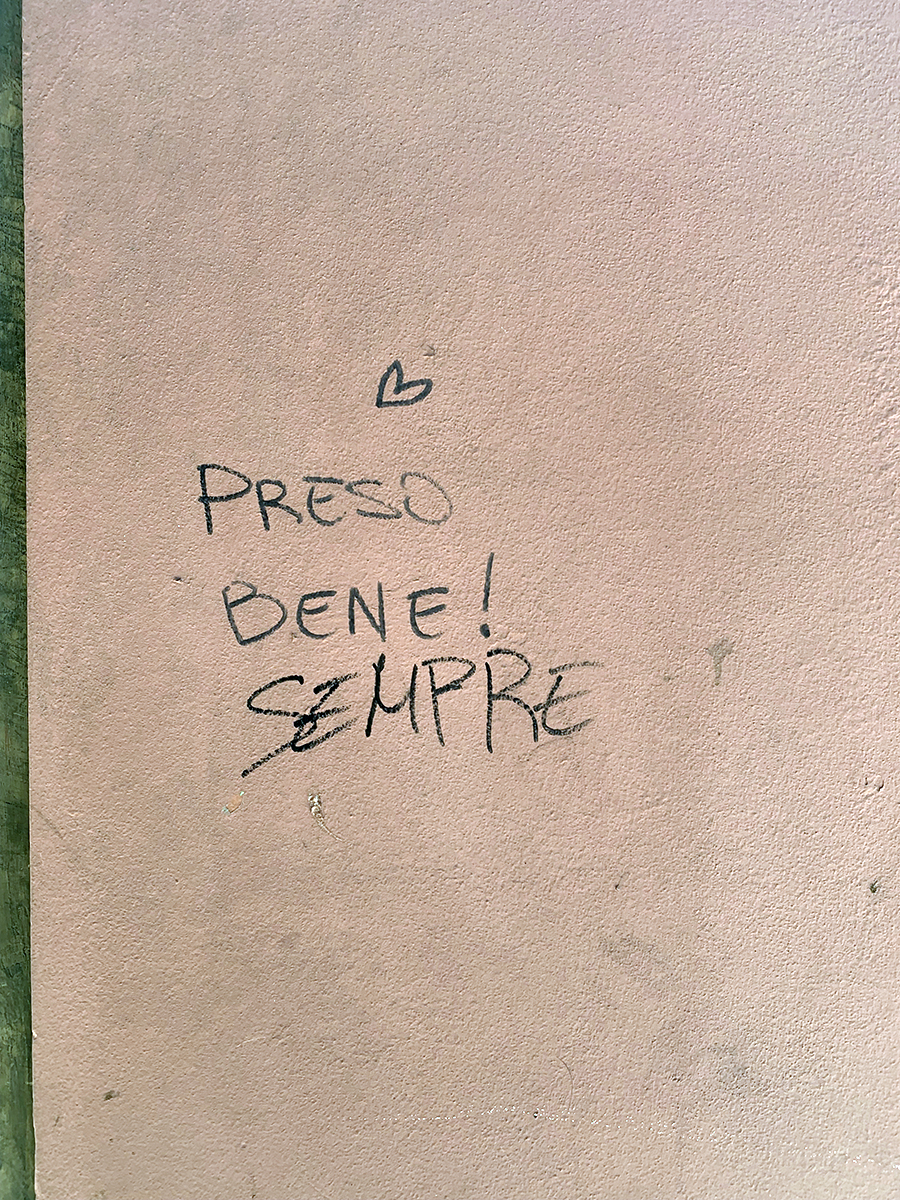 PRESO
BENE!
SEMPRE